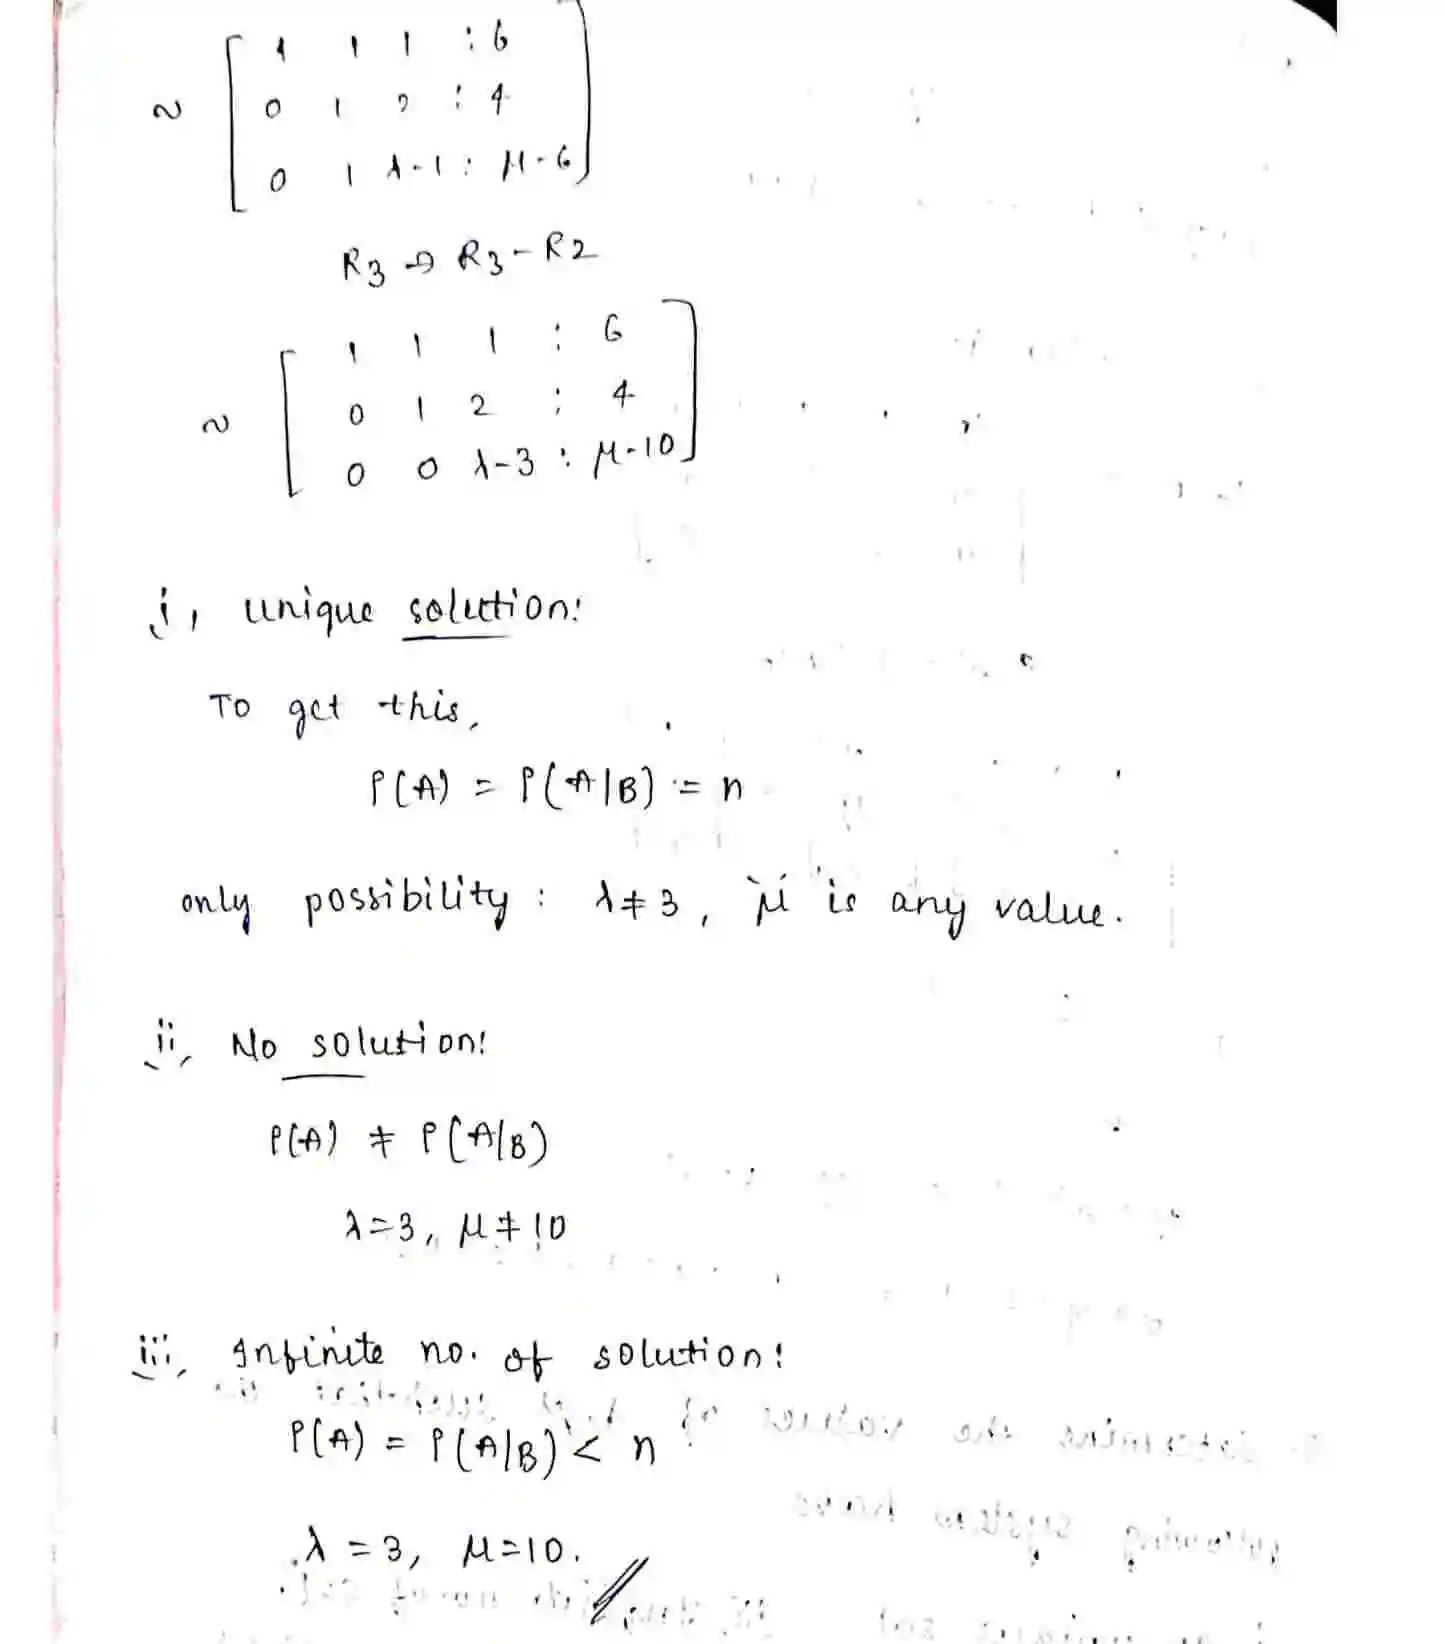 ~ [ 1 1 1 : 6
0 1 2 : 4
0 1 λ-1 : μ-6 ]
R3 → R3-R2
~ [ 1 1 1 : 6
0 1 2 : 4
0 0 λ-3 : μ-10 ]
i, unique solution:
To get this,
ρ(A) = ρ(A|B) = n
only possibility : λ≠3, μ is any value.
ii, No solution:
ρ(A) ≠ ρ(A|B)
λ=3, μ≠10
iii, Infinite no. of solution:
ρ(A) = ρ(A|B) < n
λ = 3, μ=10.